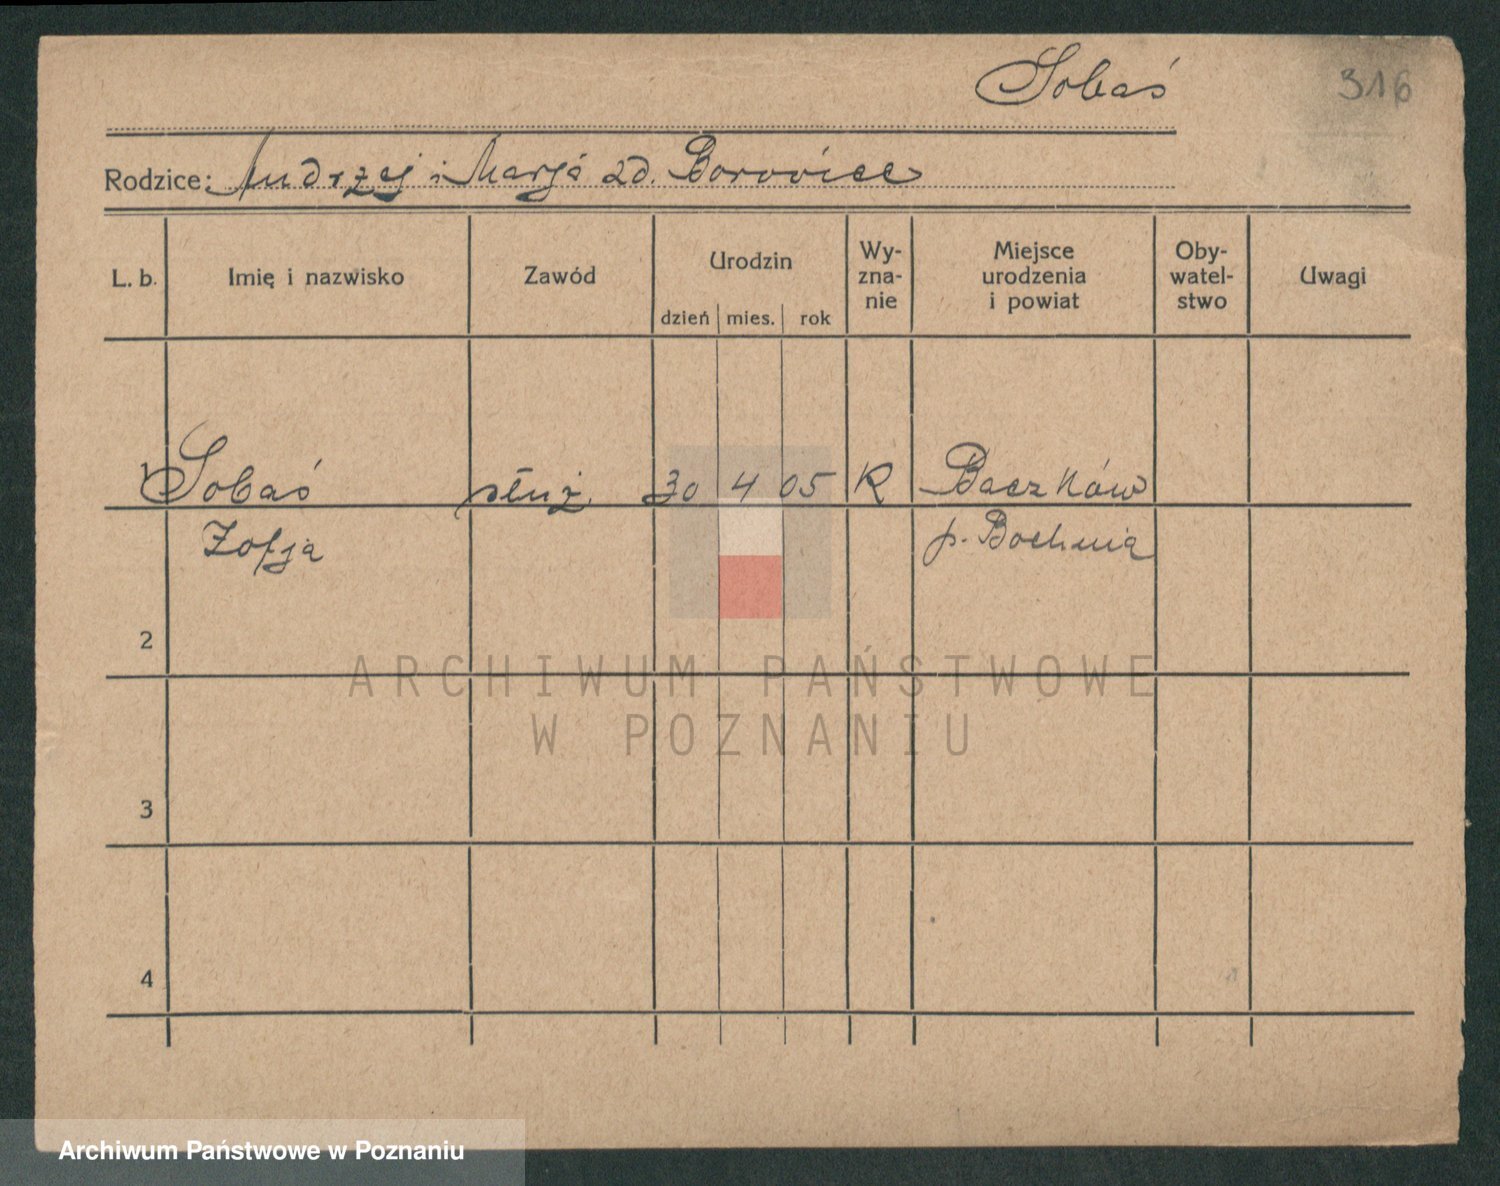 Sobaś 316
Rodzice: Andrzej i Marja zd. Borowiec
L. b. Imię i nazwisko Zawód Urodzin dzień mies. rok Wy-zna-nie Miejsce urodzenia i powiat Oby-watel-stwo Uwagi
1 Sobaś służ. 30 4 05 R Baczków
Zofja p. Bochnia
2
ARCHIWUM PAŃSTWOWE
W POZNANIU
3
4
Archiwum Państwowe w Poznaniu